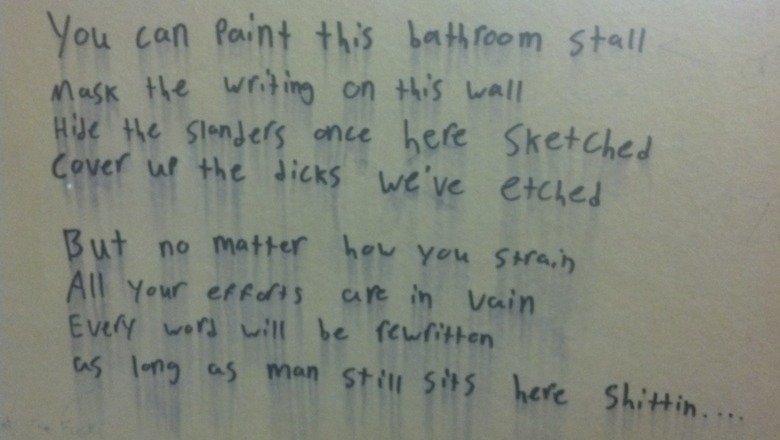 You can Paint this bathroom stall
Mask the writing on this wall
Hide the slanders once here sketched
Cover up the dicks we've etched
But no matter how you strain
All your efforts are in vain
Every word will be rewritten
as long as man still sits here shittin....